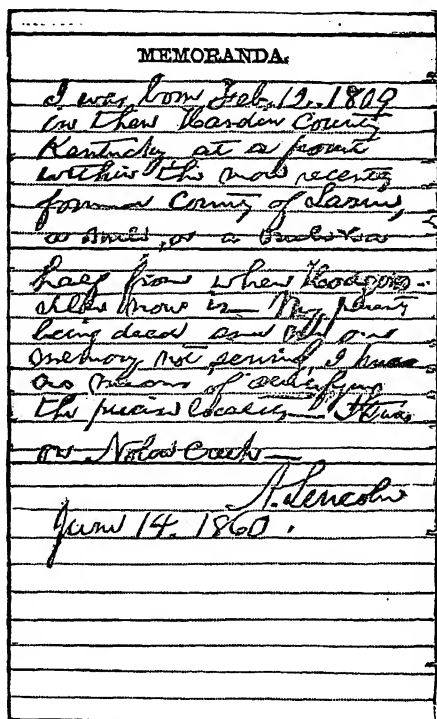 MEMORANDA.
I was born Feb. 12. 1809
in then Hardin County
Kentucky, at a point
within the now recently
formed County of Larue,
a mile, or a mile & a
half from where Hodgens-
ville now is— My parents
being dead and my own
memory not serving, I have
no means of identifying
the precise locality— It was
on Nolin Creek—
A. Lincoln
June 14. 1860.